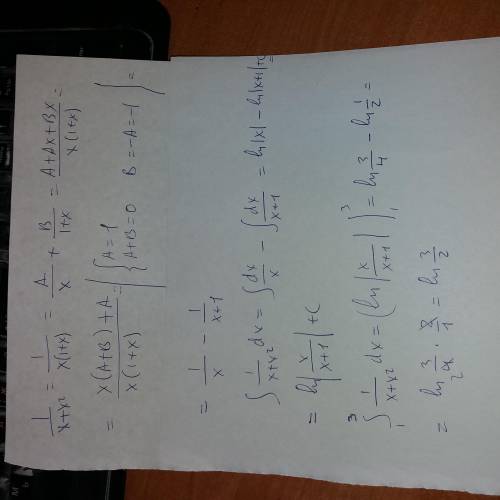 1/(x+x²) = 1/(x(1+x)) = A/x + B/(1+x) = (A+Ax+Bx)/(x(1+x)) =
= (x(A+B)+A)/(x(1+x)) = | { A=1 A+B=0 B=-A=-1 | =
= 1/x - 1/(x+1)
∫ 1/(x+x²) dx = ∫ dx/x - ∫ dx/(x+1) = ln|x| - ln|x+1| + C
= ln|x/(x+1)| + C
∫₁³ 1/(x+x²) dx = (ln|x/(x+1)|)|₁³ = ln 3/4 - ln 1/2 =
= ln 3/4 · 2/1 = ln 3/2